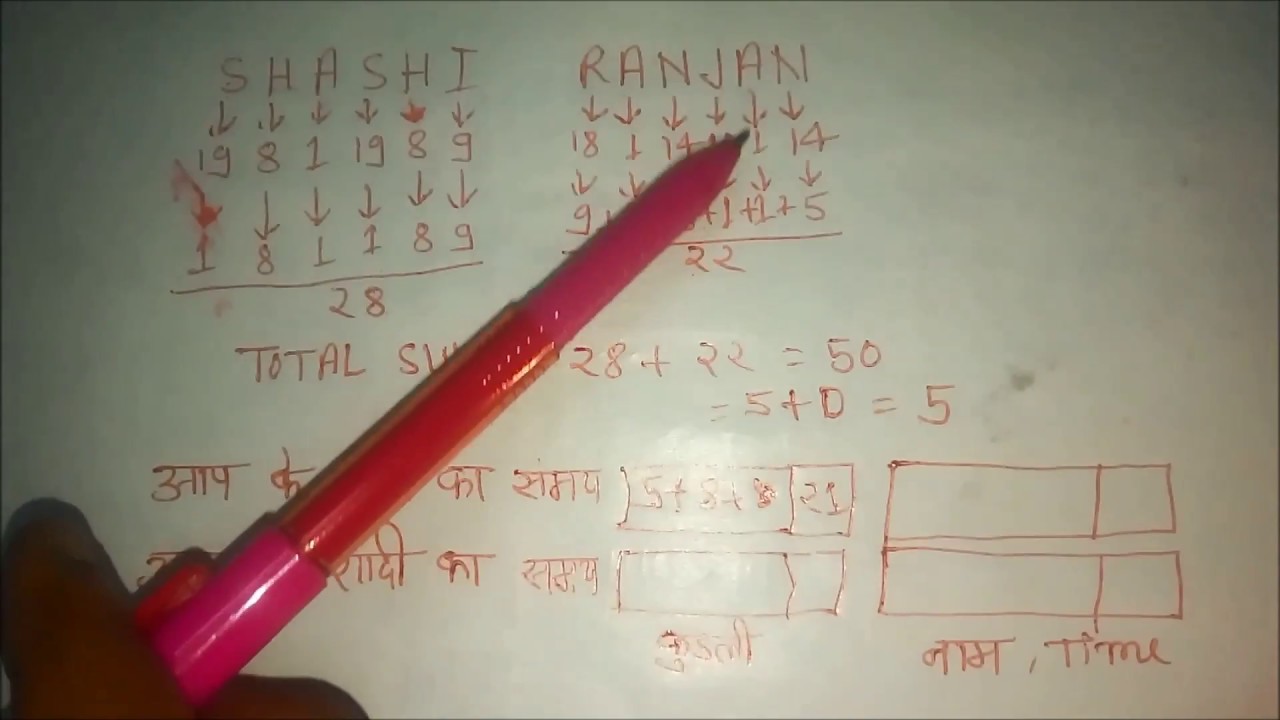 SHASHI RANJAN
19 8 1 19 8 9 18 1 14 1 14
1 8 1 1 8 9 9 +1+1+5
28 22
TOTAL 28 + 22 = 50
= 5+0 = 5
आप के का समय 5+8+8 21
शादी का समय
कुडली नाम, Time